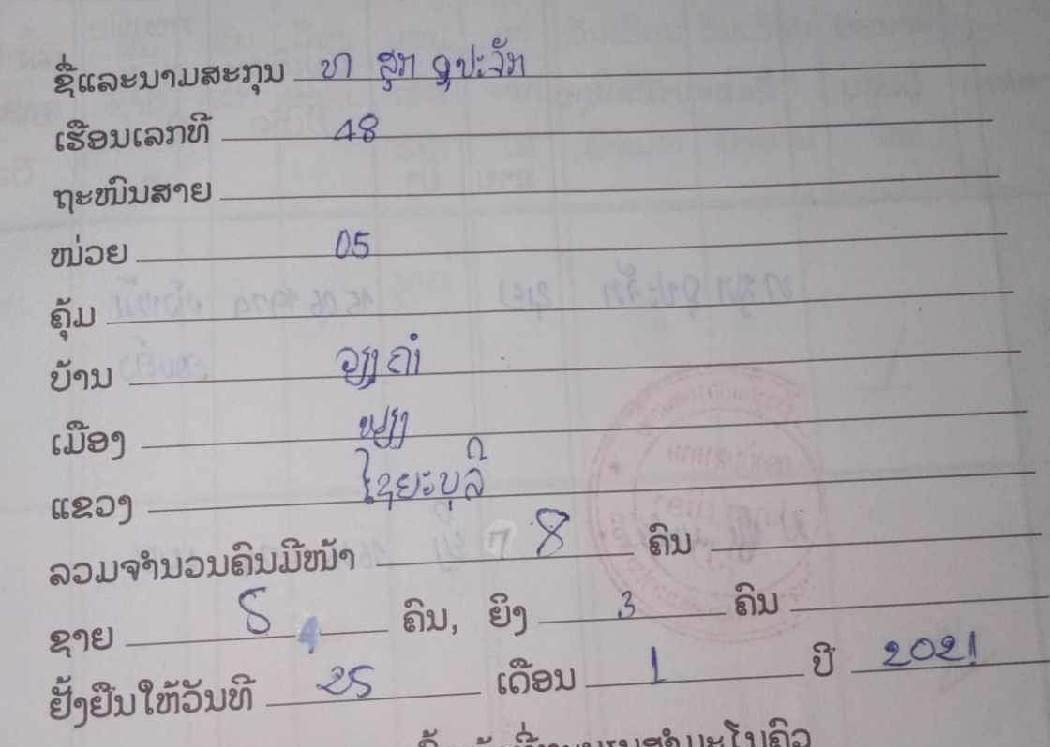 ຊື່ແລະນາມສະກຸນ ທາ ສຸກ
ເຮືອນເລກທີ 48
ຖະໜົນສາຍ
ໜ່ວຍ 05
ຄຸ້ມ
ບ້ານ ວຽງຄຳ
ເມືອງ ພຽງ
ແຂວງ ໄຊຍະບູລີ
ລວມຈຳນວນຄົນມີໜ້າ 8 ຄົນ
ຊາຍ 5 4 ຄົນ, ຍິງ 3 ຄົນ
ຢັ້ງຢືນໃຫ້ວັນທີ 25 ເດືອນ 1 ປີ 2021